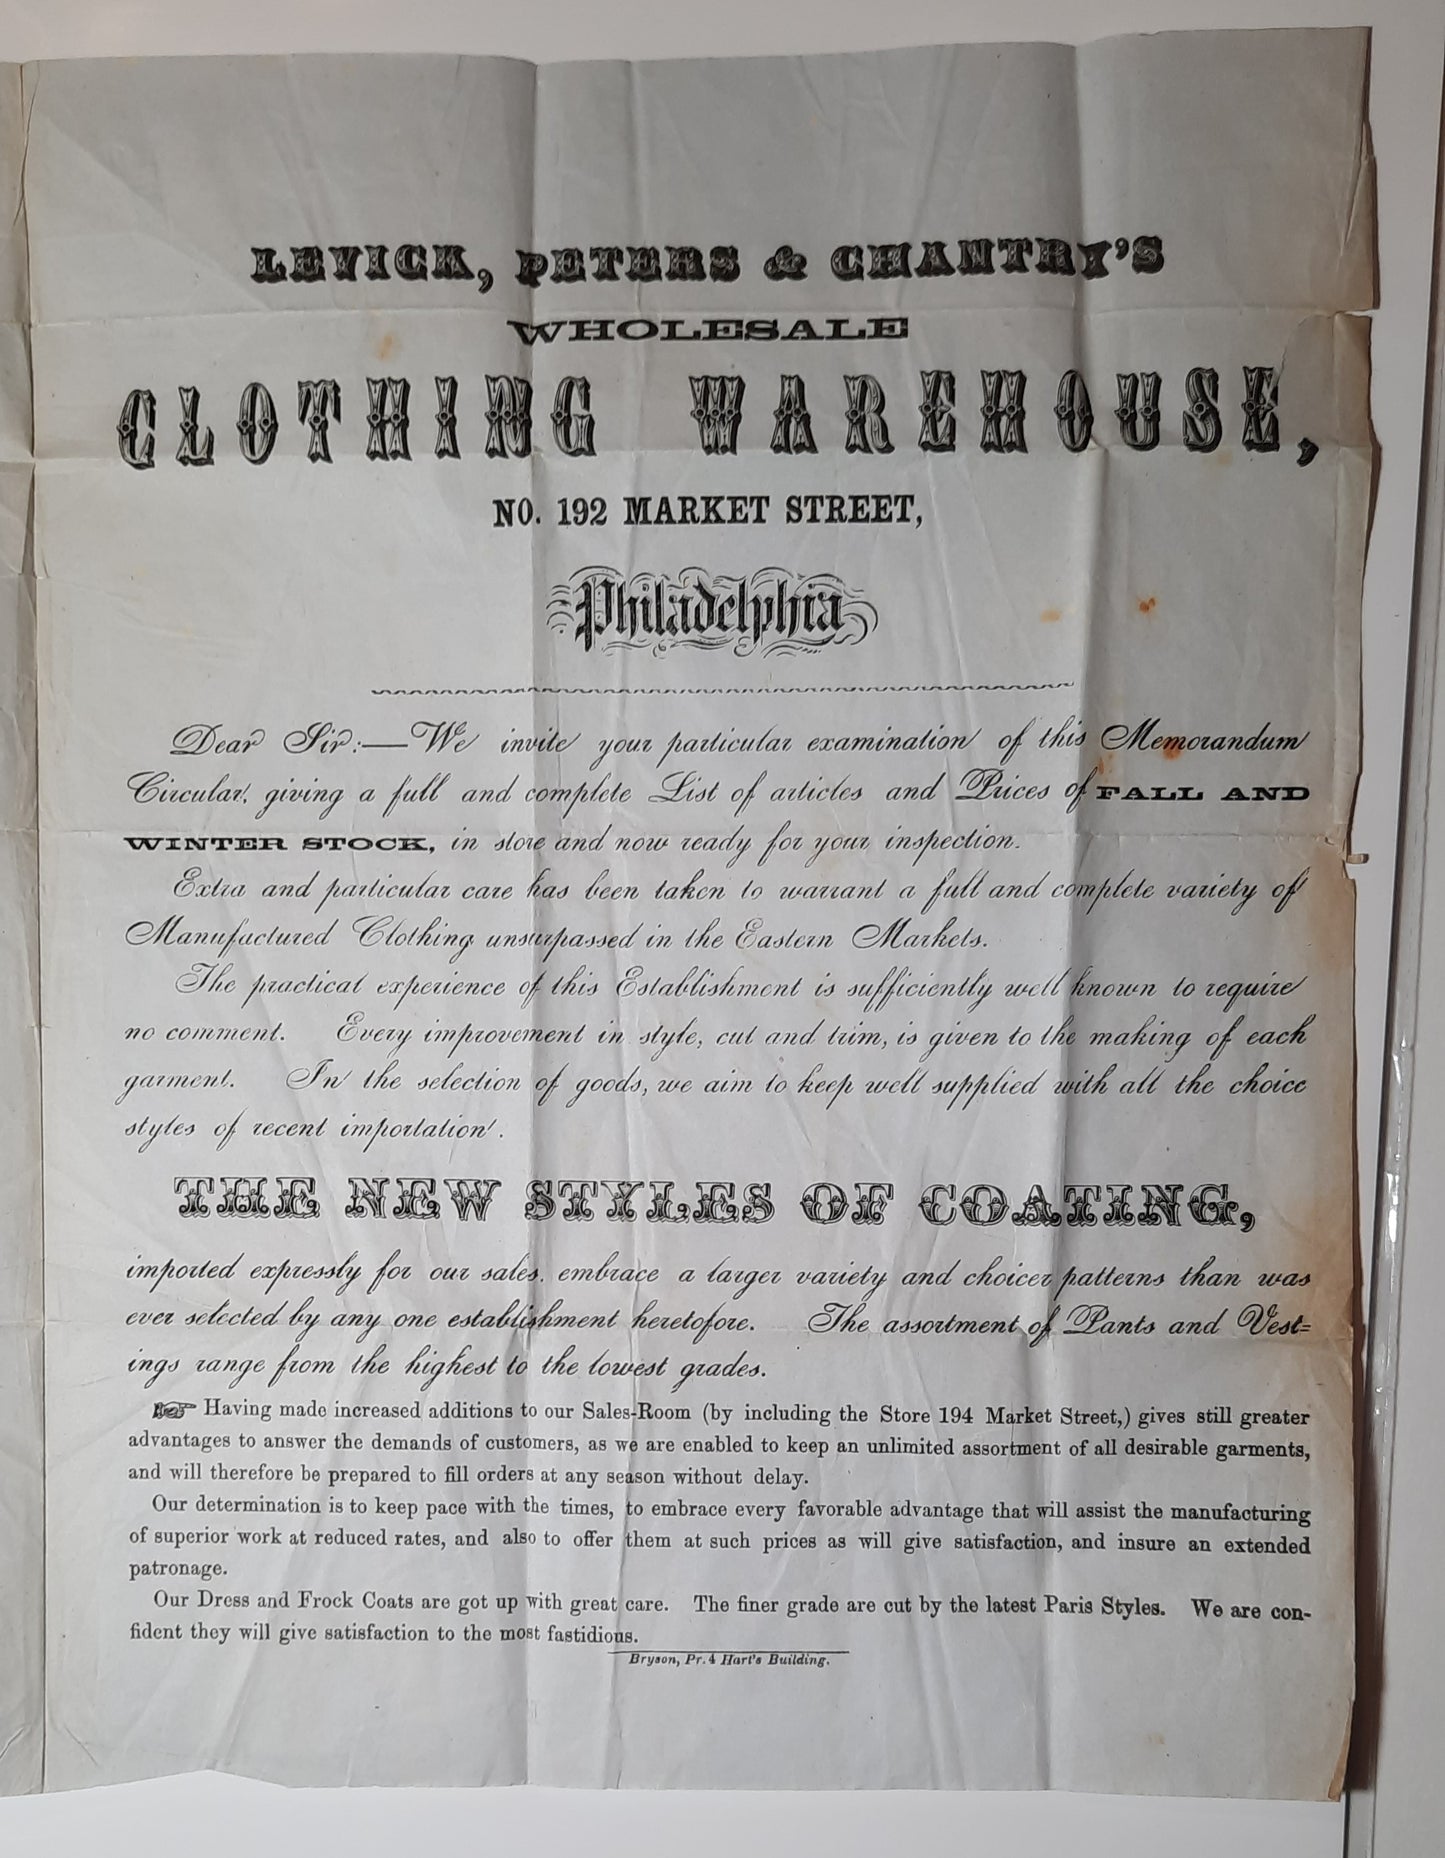 LEVICK, PETERS & CHANTRY'S
WHOLESALE
CLOTHING WAREHOUSE,
NO. 192 MARKET STREET,
Philadelphia
Dear Sir:—We invite your particular examination of this Memorandum
Circular, giving a full and complete List of articles and Prices of FALL AND
WINTER STOCK, in store and now ready for your inspection.
Extra and particular care has been taken to warrant a full and complete variety of
Manufactured Clothing unsurpassed in the Eastern Markets.
The practical experience of this Establishment is sufficiently well known to require
no comment. Every improvement in style, cut and trim, is given to the making of each
garment. In the selection of goods, we aim to keep well supplied with all the choice
styles of recent importation.
THE NEW STYLES OF COATING,
imported expressly for our sales, embrace a larger variety and choicer patterns than was
ever selected by any one establishment heretofore. The assortment of Pants and Vest=
ings range from the highest to the lowest grades.
☞ Having made increased additions to our Sales-Room (by including the Store 194 Market Street,) gives still greater
advantages to answer the demands of customers, as we are enabled to keep an unlimited assortment of all desirable garments,
and will therefore be prepared to fill orders at any season without delay.
Our determination is to keep pace with the times, to embrace every favorable advantage that will assist the manufacturing
of superior work at reduced rates, and also to offer them at such prices as will give satisfaction, and insure an extended
patronage.
Our Dress and Frock Coats are got up with great care. The finer grade are cut by the latest Paris Styles. We are con-
fident they will give satisfaction to the most fastidious.
Bryson, Pr. 4 Hart's Building.